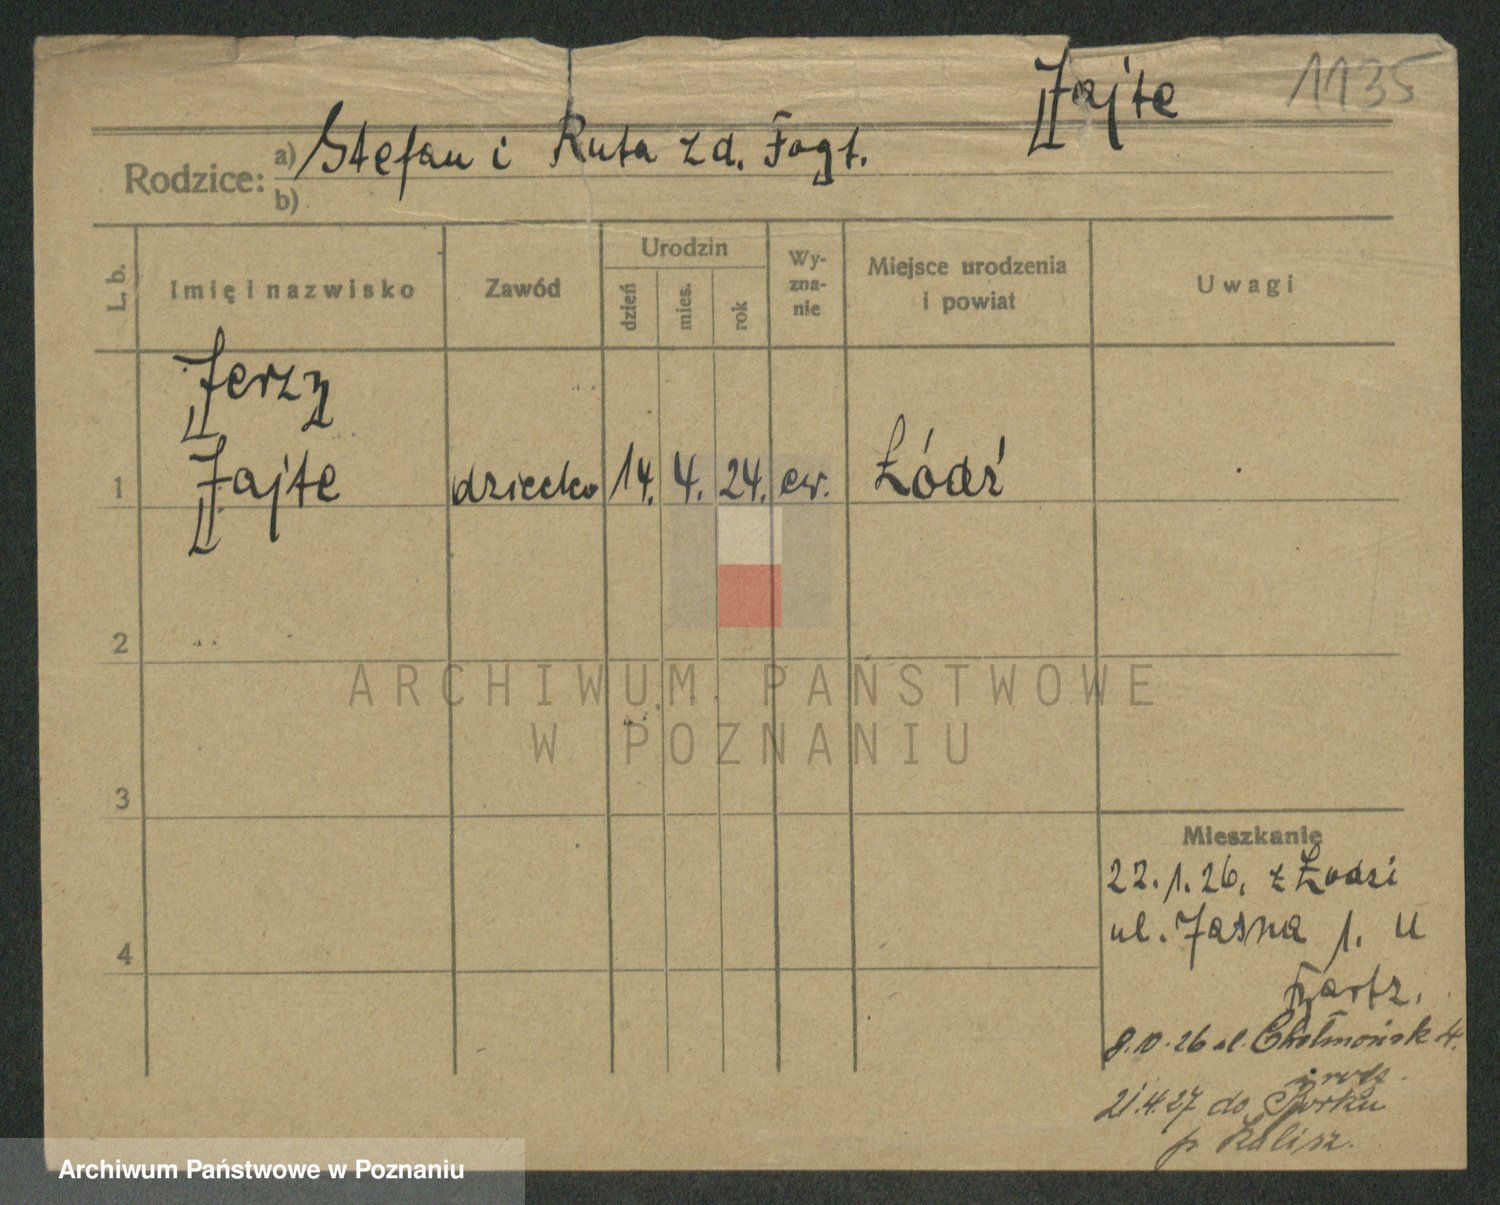 Jajte
1135
Rodzice: a) Stefan i Ruta z d. Fogt.
b)
L. b.
Imię i nazwisko
Zawód
Urodzin
dzień
mies.
rok
Wy-
zna-
nie
Miejsce urodzenia
i powiat
Uwagi
Jerzy
1 Jajte dziecko 14. 4. 24. ew. Łódź
2
3
4
Mieszkanie
22.1.26. z Łodzi
ul. Jasna 1. u
8.10.26 ul. Chełmońsk 4.
21.4.27 do
p. Kalisz.
ARCHIWUM PAŃSTWOWE
W POZNANIU
Archiwum Państwowe w Poznaniu